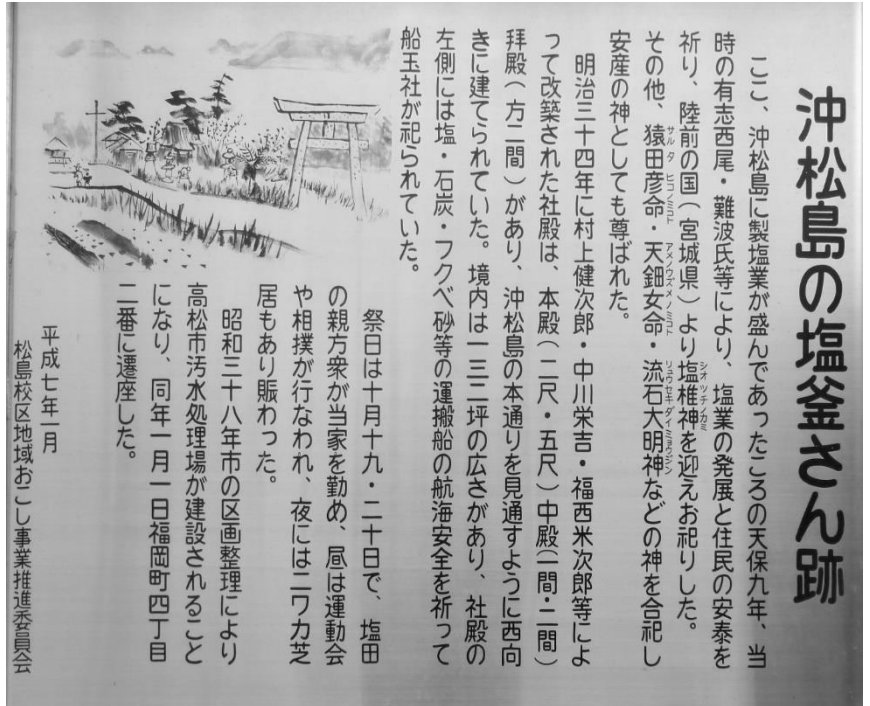 沖松島の塩釜さん跡
ここ、沖松島に製塩業が盛んであったころの天保九年、当
時の有志西尾・難波氏等により、塩業の発展と住民の安泰を
祈り、陸前の国(宮城県)より塩椎神シオツチノカミを迎えお祀りした。
その他、猿田彦命サルタヒコノミコト・天鈿女命アメノウズメノミコト・流石大明神リュウセキダイミョウジンなどの神を合祀し
安産の神としても尊ばれた。
明治三十四年に村上健次郎・中川栄吉・福西米次郎等によ
って改築された社殿は、本殿(二尺・五尺)中殿(一間・二間)
拝殿(方二間)があり、沖松島の本通りを見通すように西向
きに建てられていた。境内は一三二坪の広さがあり、社殿の
左側には塩・石炭・フクベ砂等の運搬船の航海安全を祈って
船玉社が祀られていた。
祭日は十月十九・二十日で、塩田
の親方衆が当家を勤め、昼は運動会
や相撲が行なわれ、夜にはニワカ芝
居もあり賑わった。
昭和三十八年市の区画整理により
高松市汚水処理場が建設されること
になり、同年一月一日福岡町四丁目
二番に遷座した。
平成七年一月
松島校区地域おこし事業推進委員会